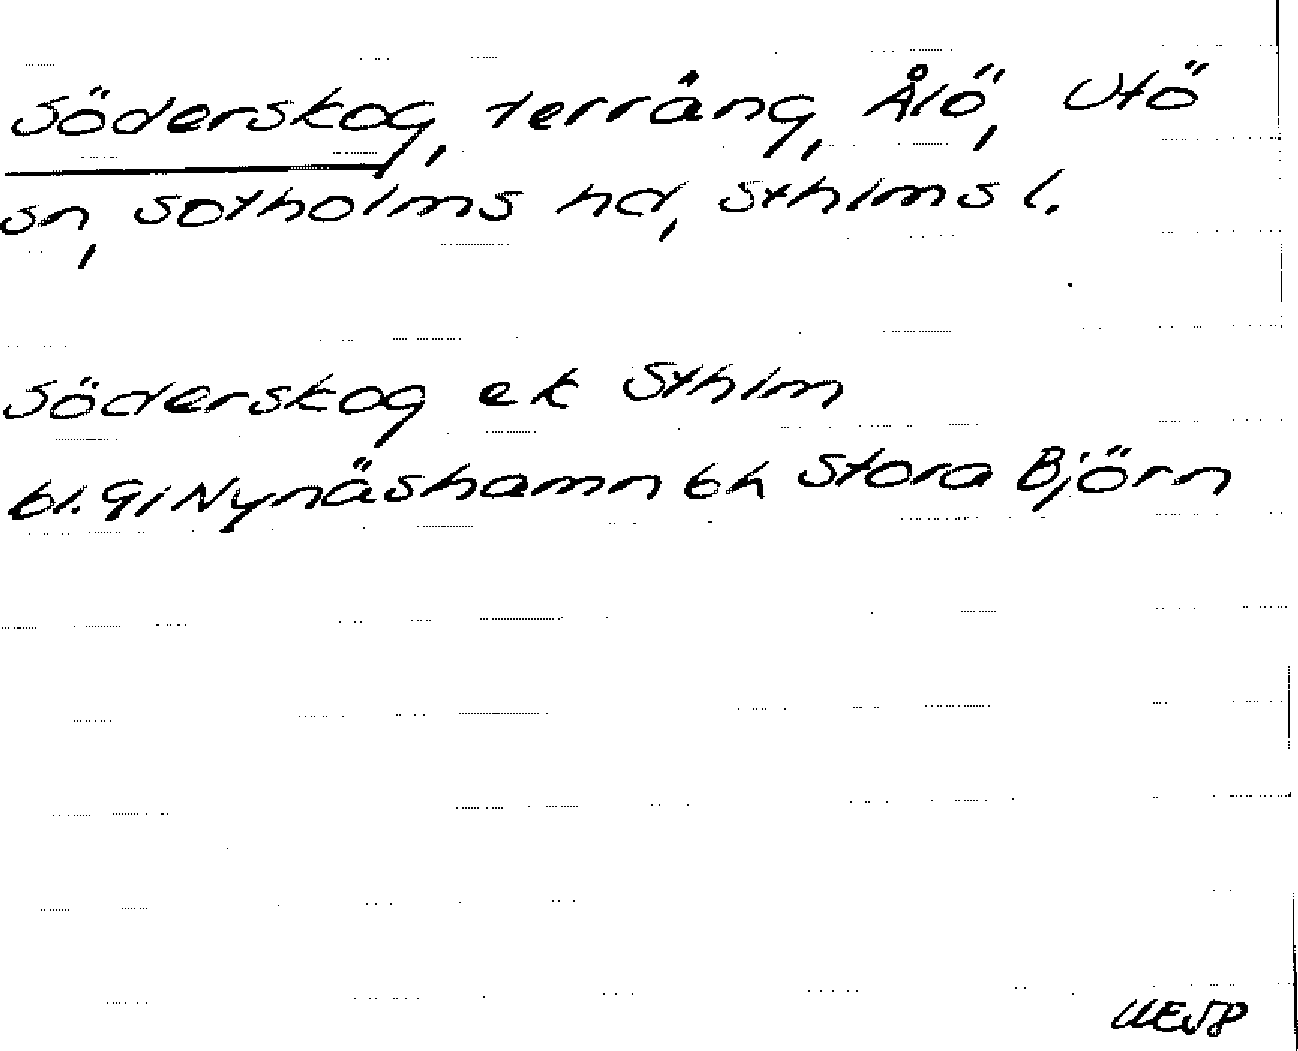 Söderskog, terräng, Ålö, Utö
sn, Sotholms hd, Sthlms l.
Söderskog ek Sthlm
bl. 9i Nynäshamn bh Stora Björn